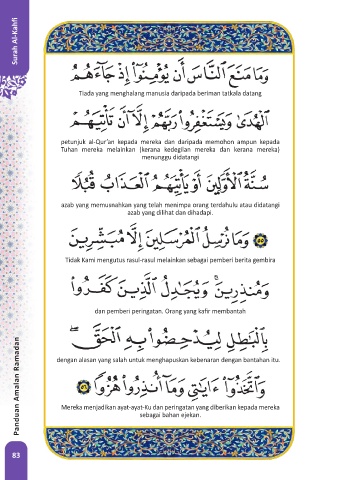 Surah Al-Kahfi
وَمَا مَنَعَ ٱلنَّاسَ أَن يُؤْمِنُوٓا۟ إِذْ جَآءَهُمُ
Tiada yang menghalang manusia daripada beriman tatkala datang
ٱلْهُدَىٰ وَيَسْتَغْفِرُوا۟ رَبَّهُمْ إِلَّآ أَن تَأْتِيَهُمْ
petunjuk al-Qur’an kepada mereka dan daripada memohon ampun kepada
Tuhan mereka melainkan (kerana kedegilan mereka dan kerana mereka)
menunggu didatangi
سُنَّةُ ٱلْأَوَّلِينَ أَوْ يَأْتِيَهُمُ ٱلْعَذَابُ قُبُلًا
azab yang memusnahkan yang telah menimpa orang terdahulu atau didatangi
azab yang dilihat dan dihadapi.
٥٥ وَمَا نُرْسِلُ ٱلْمُرْسَلِينَ إِلَّا مُبَشِّرِينَ
Tidak Kami mengutus rasul-rasul melainkan sebagai pemberi berita gembira
وَمُنذِرِينَ ۚ وَيُجَٰدِلُ ٱلَّذِينَ كَفَرُوا۟
dan pemberi peringatan. Orang yang kafir membantah
بِٱلْبَٰطِلِ لِيُدْحِضُوا۟ بِهِ ٱلْحَقَّ ۖ
dengan alasan yang salah untuk menghapuskan kebenaran dengan bantahan itu.
وَٱتَّخَذُوٓا۟ ءَايَٰتِى وَمَآ أُنذِرُوا۟ هُزُوًا ٥٦
Mereka menjadikan ayat-ayat-Ku dan peringatan yang diberikan kepada mereka
sebagai bahan ejekan.
Panduan Amalan Ramadan
83